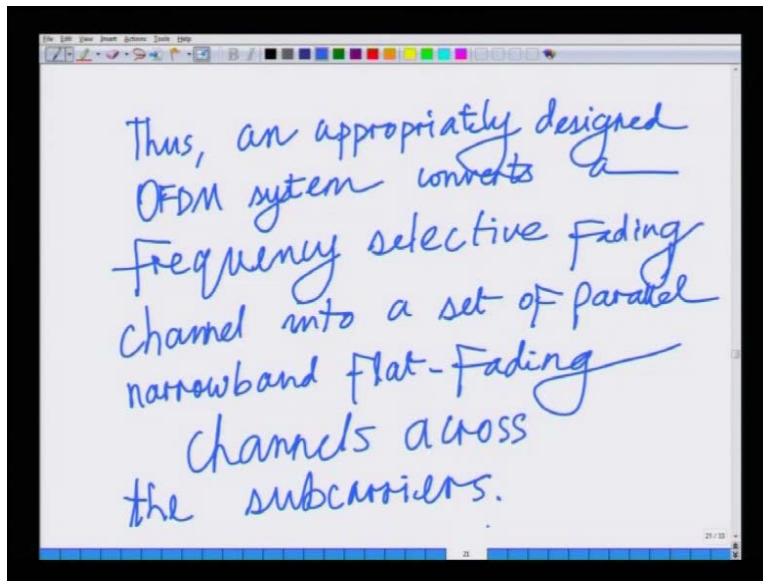 File Edit View Insert Actions Tools Help
Thus, an appropriately designed
OFDM sytem converts a
frequency selective Fading
channel into a set of parallel
narrowband Flat-Fading
channels across
the subcarriers.
21/33
21